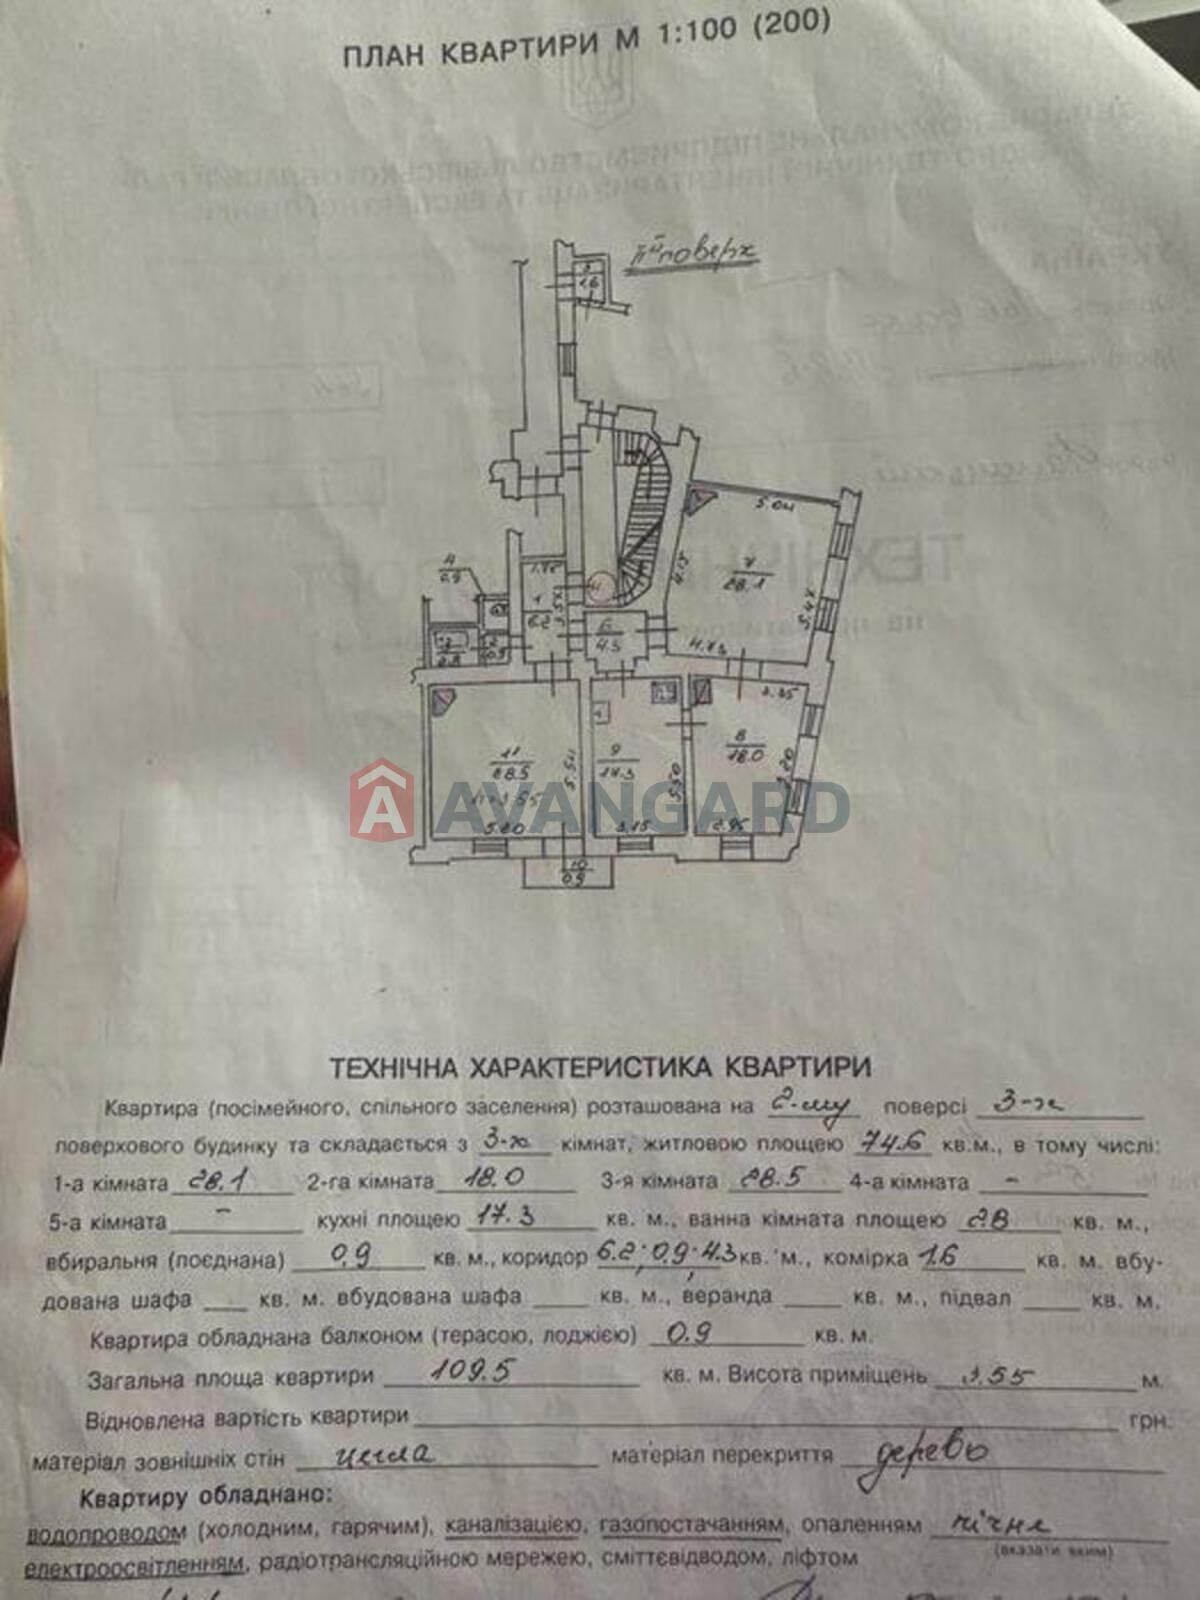 ПЛАН КВАРТИРИ М 1:100 (200)
поверх
5
1.6
5.04
4
0.9
1.75
7
28.1
4.15
5.47
1
6.2
6
4.3
4.73
3
2.8
2
0.9
3.35
11
28.5
h=3.55
5.51
9
17.3
5.50
8
18.0
5.20
AVANGARD
5.20
3.15
2.95
10
0.9
ТЕХНІЧНА ХАРАКТЕРИСТИКА КВАРТИРИ
Квартира (посімейного, спільного заселення) розташована на 2-му поверсі 3-х
поверхового будинку та складається з 3-х кімнат, житловою площею 74.6 кв.м., в тому числі:
1-а кімната 28.1 2-га кімната 18.0 3-я кімната 28.5 4-а кімната -
5-а кімната - кухні площею 17.3 кв. м., ванна кімната площею 2.8 кв. м.,
вбиральня (поєднана) 0.9 кв. м., коридор 6.2; 0.9; 4.3 кв. м., комірка 1.6 кв. м. вбу-
дована шафа ____ кв. м. вбудована шафа ____ кв. м., веранда ____ кв. м., підвал ____ кв. м.
Квартира обладнана балконом (терасою, лоджією) 0.9 кв. м.
Загальна площа квартири 109.5 кв. м. Висота приміщень 3.55 м.
Відновлена вартість квартири ____ грн.
матеріал зовнішніх стін цегла матеріал перекриття дерево
Квартиру обладнано:
водопроводом (холодним, гарячим), каналізацією, газопостачанням, опаленням пічне
(вказати яким)
електроосвітленням, радіотрансляційною мережею, сміттєвідводом, ліфтом